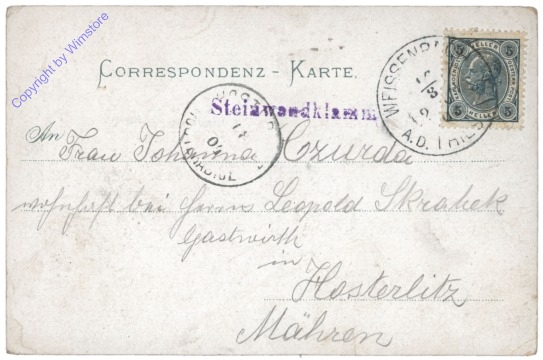 Copyright by Wimstore
CORRESPONDENZ - KARTE.
5 HELLER 5
WEISSENBACH
A.D. TRIESTING
Steinwandklamm
04
An Frau Johanna Czurda
wohnhaft bei Herrn Leopold Skrabek
Gastwirth
in
Hosterlitz
Mähren